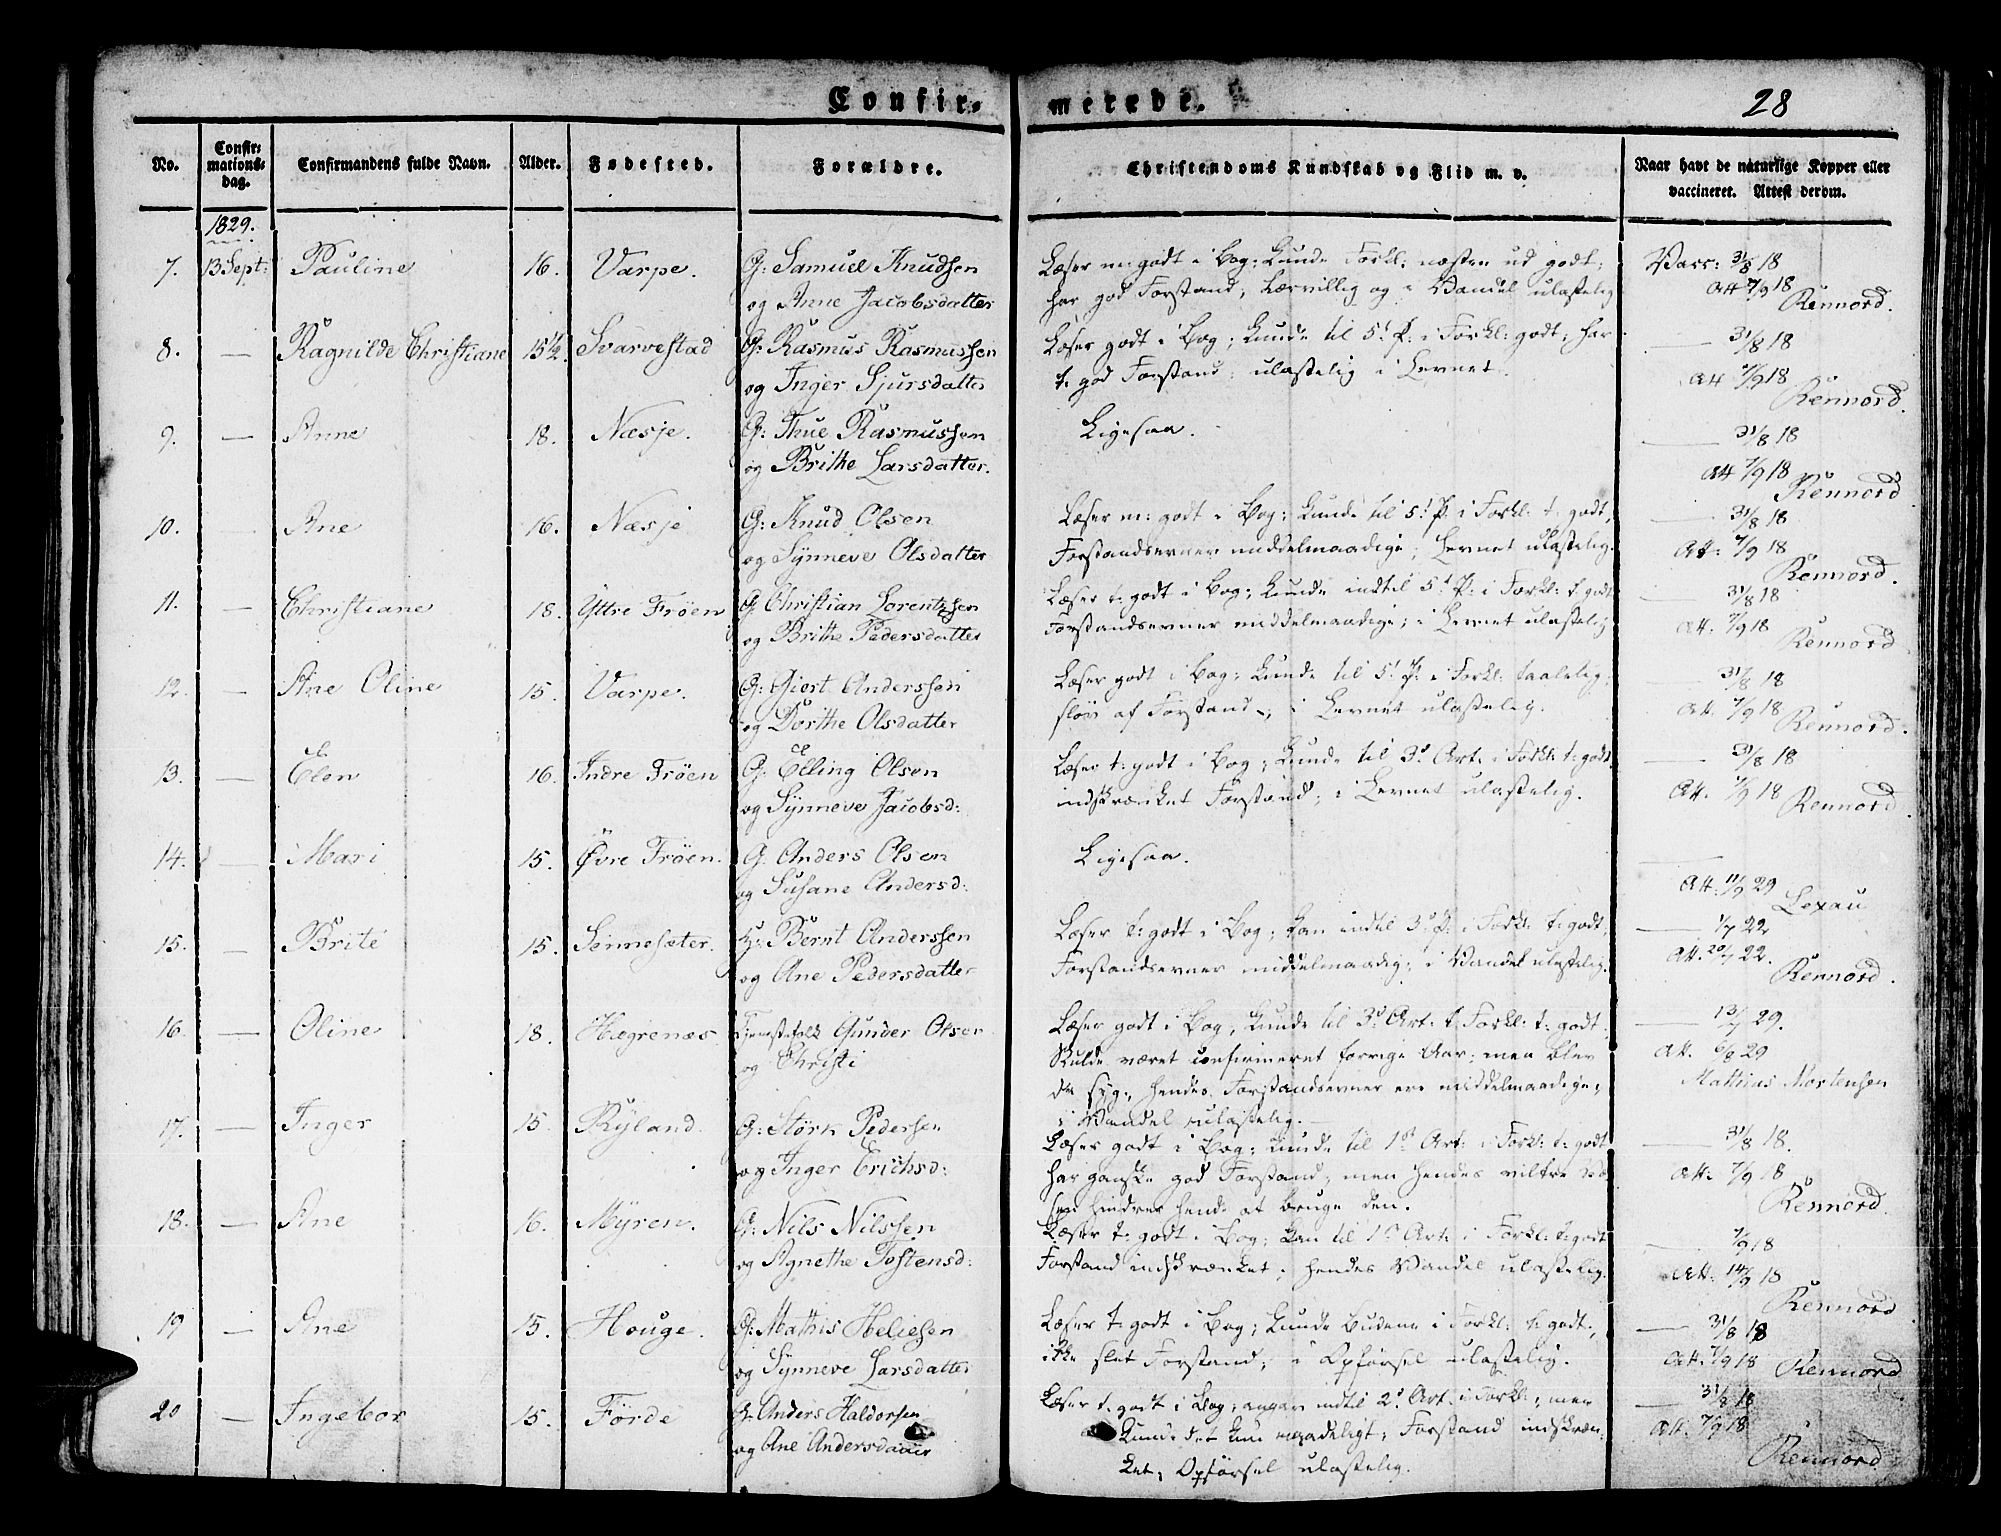 Confir-
merede.
28
No.
Confir-
mations-
dag.
Confirmandens fulde Navn.
Alder.
Fødested.
Forældre.
Christendoms Kundskab og Flid m. v.
Naar havt de naturlige Kopper eller
vaccineret. Attest derom.
1829.
7. 13 Sept: Pauline 16. Varpe. G: Samuel Knudsen
og Anne Jacobsdatter
Læser m: godt i Bog; Kunde Forkl: næsten ud godt;
har god Forstand; Lærvillig og i Vandel ulastelig
Vacc: 31/8 18
Att 7/9 18
Rennord.
8. — Ragnilde Christiane 15 1/2. Svarvestad G: Rasmus Rasmussen
og Inger Sjursdatter
Læser godt i Bog; Kunde til 5t P: i Forkl: godt; har
t. god Forstand; ulastelig i Levnet.
— 31/8 18
Att 7/9 18
Rennord.
9. — Anne 18. Næsje. G: Thue Rasmussen
og Brithe Larsdatter.
Ligesaa.
— 31/8 18
Att 7/9 18
Rennord
10. Ane 16. Næsje G: Knud Olsen
og Synneve Olsdatter
Læser m: godt i Bog; Kunde til 5t P: i Forkl: t. godt,
Forstandsevner middelmaadige; Levnet ulastelig.
— 31/8 18
Att: 7/9 18
Rennord.
11. — Christiane 18. Yttre Frøen G: Christian Lorentzsen
og Brithe Pedersdatter
Læser t: godt i Bog; Kunde indtil 5t P: i Forkl: t. godt
Forstandsevner middelmaadige; i Levnet ulastelig
— 31/8 18
Att: 7/9 18
Rennord
12. — Ane Oline 15. Varpe. G: Giert Anderssen
og Dorthe Olsdatter
Læser godt i Bog; Kunde til 5t P: i Forkl: taalelig;
sløv af Forstand; i Levnet ulastelig.
— 31/8 18
Att. 7/9 18
Rennord.
13. — Elen 16. Indre Frøen G: Elling Olsen
og Synneve Jacobsd:
Læser t: godt i Bog; Kunde til 3d Art: i Forkl: t: godt.
indskrænket Forstand; i Levnet ulastelig.
— 31/8 18
Att. 7/9 18
Rennord
14. — Mari 15. Øvre Frøen. G. Anders Olsen
og Susane Andersd:
Ligesaa.
—
Att: 11/9 29
Lexau
15. — Brite 15. Sønnesæter. G: Bernt Anderssen
og Ane Pedersdatter
Læser t: godt i Bog; Kan indtil 3d P: i Forkl: t: godt.
Forstandsevner middelmaadig; i Vandel ulastelig.
— 1/7 22
Att. 20/7 22.
Rennord.
16. — Oline 18. Hægrenæs. Tjenestefolk Gunder Olsen
og Christi
Læser godt i Bog, Kunde til 3d Art: i Forkl: t: godt.
Skulde været confirmeret forrige Aar; men blev
da syg; hendes Forstandsevner ere middelmaadige;
i Vandel ulastelig. —
— 13/7 29.
Att. 6/8 29
Mathias Mortensen
17. — Inger 15. Ryland. G: Størk Pedersen
og Inger Erichsd:
Læser godt i Bog; Kunde til 1st Art: i Forkl: t: godt
har ganske god Forstand; men hendes viltre Væ-
sen hindrer hende at bruge den.
— 31/8 18.
Att: 7/9 18
Rennord
18. — Ane 16. Myren. G: Nils Nilssen
og Agnethe Tostensd:
Læser t: godt i Bog; Kan til 1st Art: i Forkl: t: godt
Forstand indskrænket; hendes Vandel ulastelig.
— 7/9 18
Att. 14/9 18
Rennord
19 — Ane 15. Houge. G: Mathis Heliesen
og Synneve Larsdatter
Læser t: godt i Bog; Kunde Budene i Forkl: t: godt.,
ikke slet Forstand; i Opførsel ulastelig.
— 31/8 18
Att. 7/9 18
Rennord
20 — Ingebor 15. Førde G: Anders Haldorsen
og Ane Andersdatter
Læser t. godt i Bog; angav indtil 2d Art. i Forkl:; men
Kunde det kun maadeligt; Forstand indskræn-
ket; Opførsel ulastelig.
— 31/8 18
Att. 7/9 18
Rennord